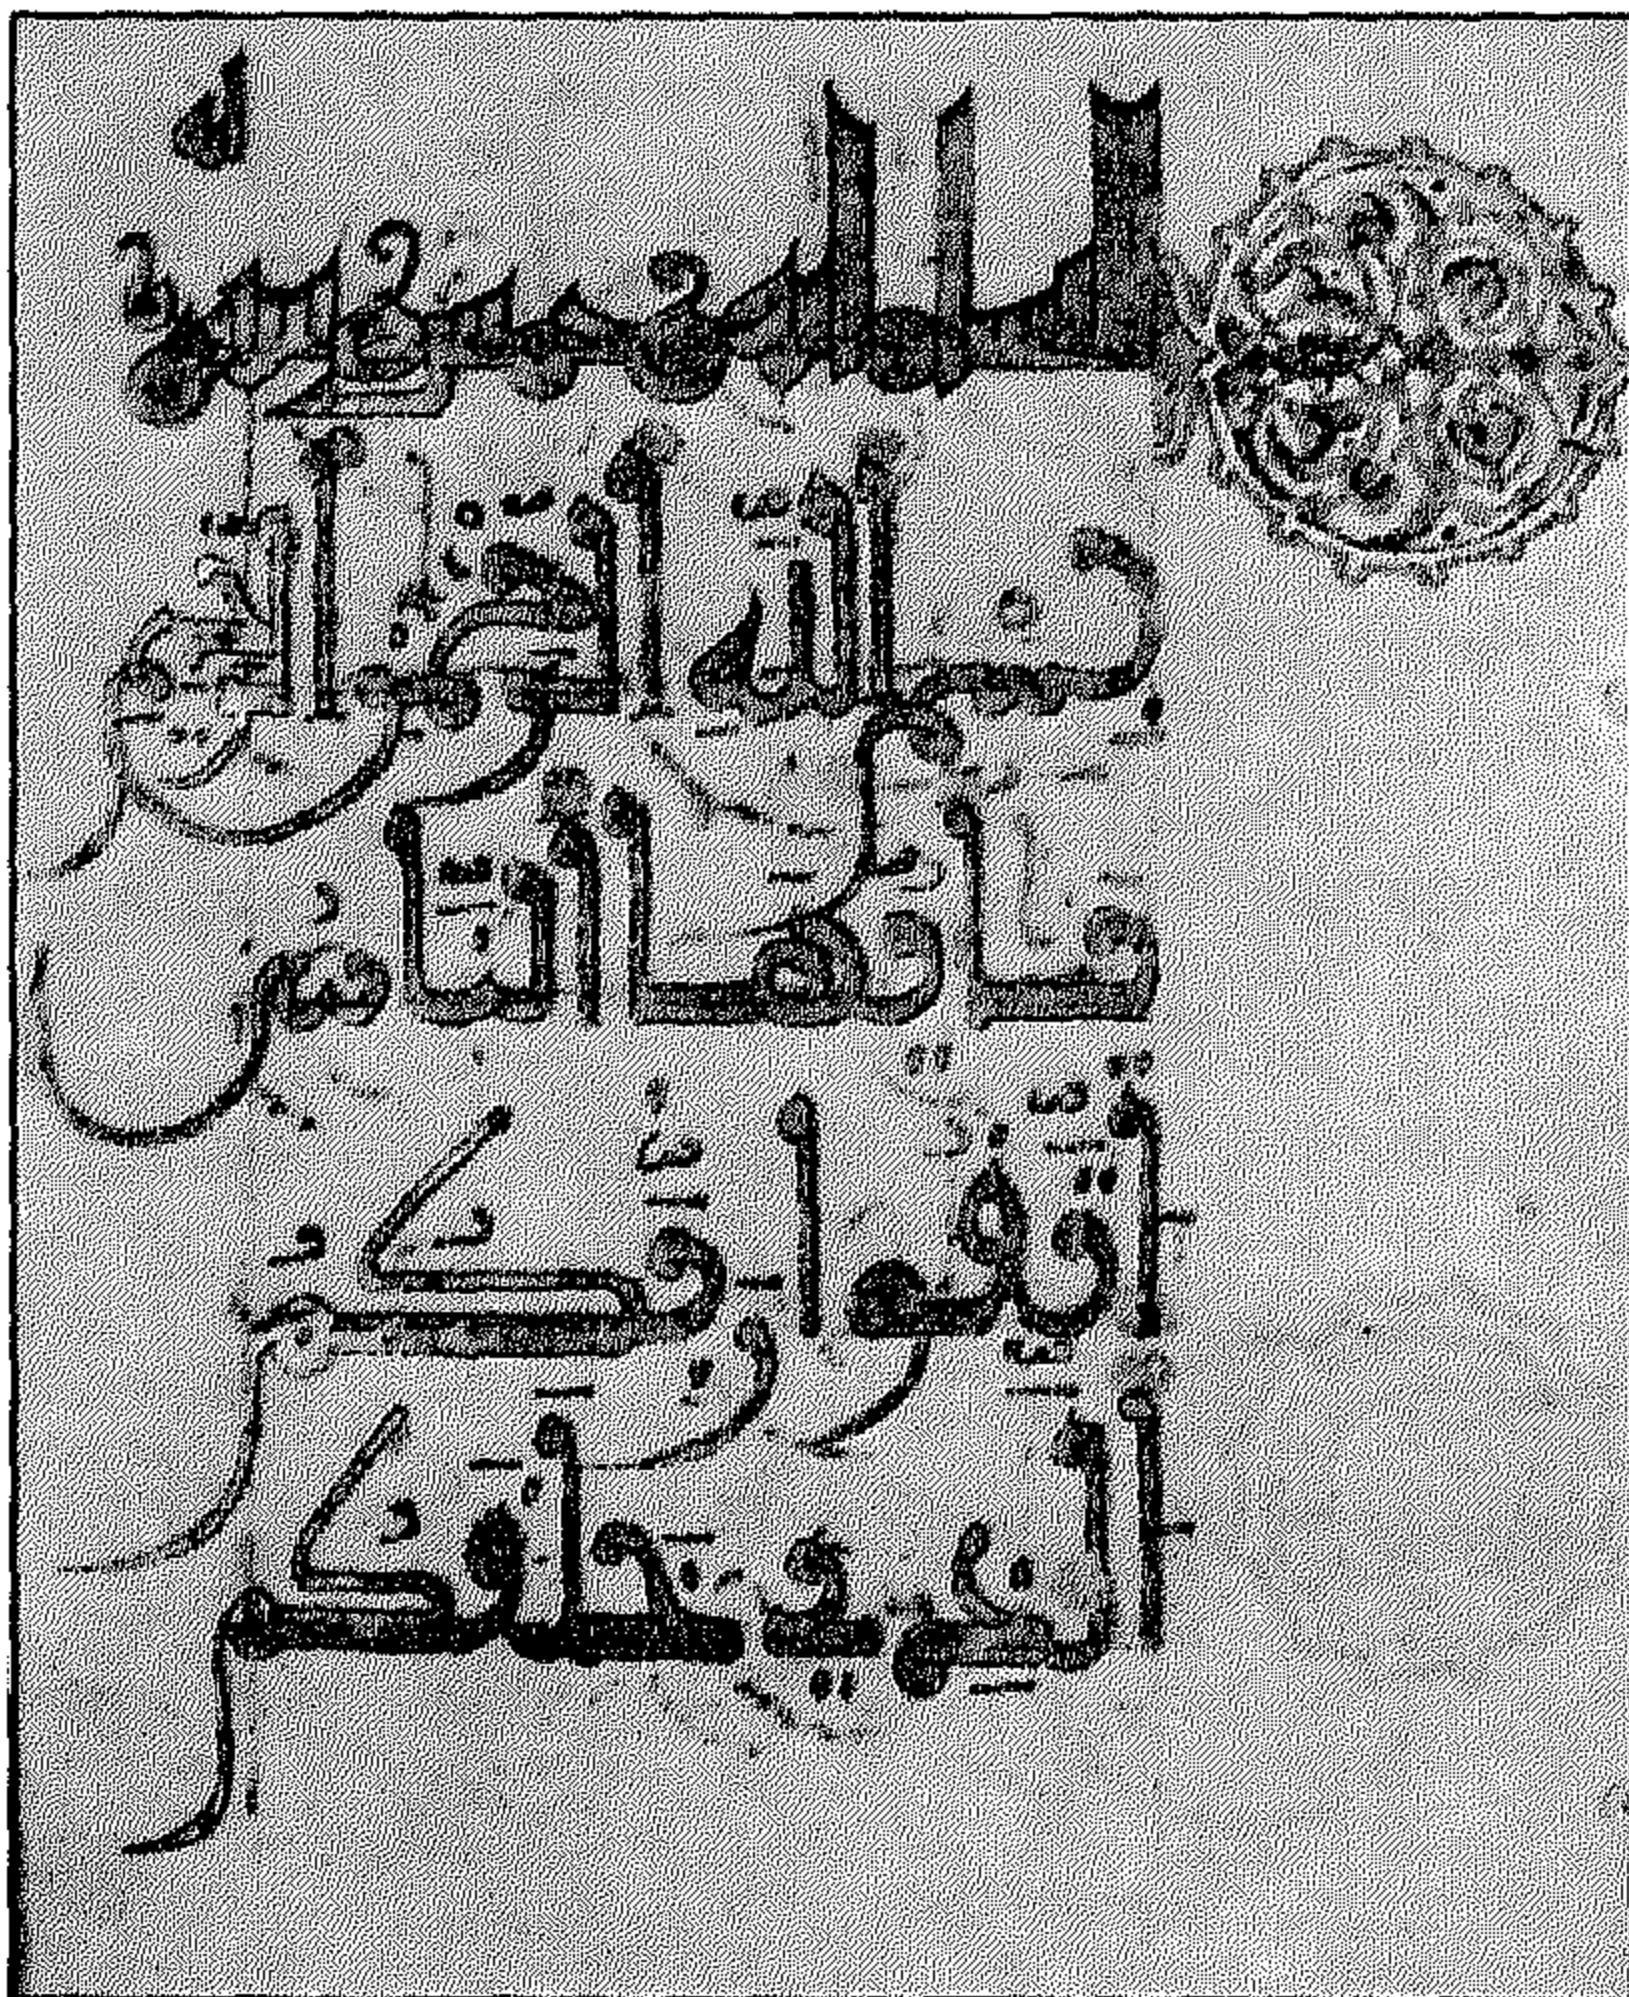 بسم الله الرحمن الرحيم
يايها الناس
اتقوا ربكم
الذي خلقكم